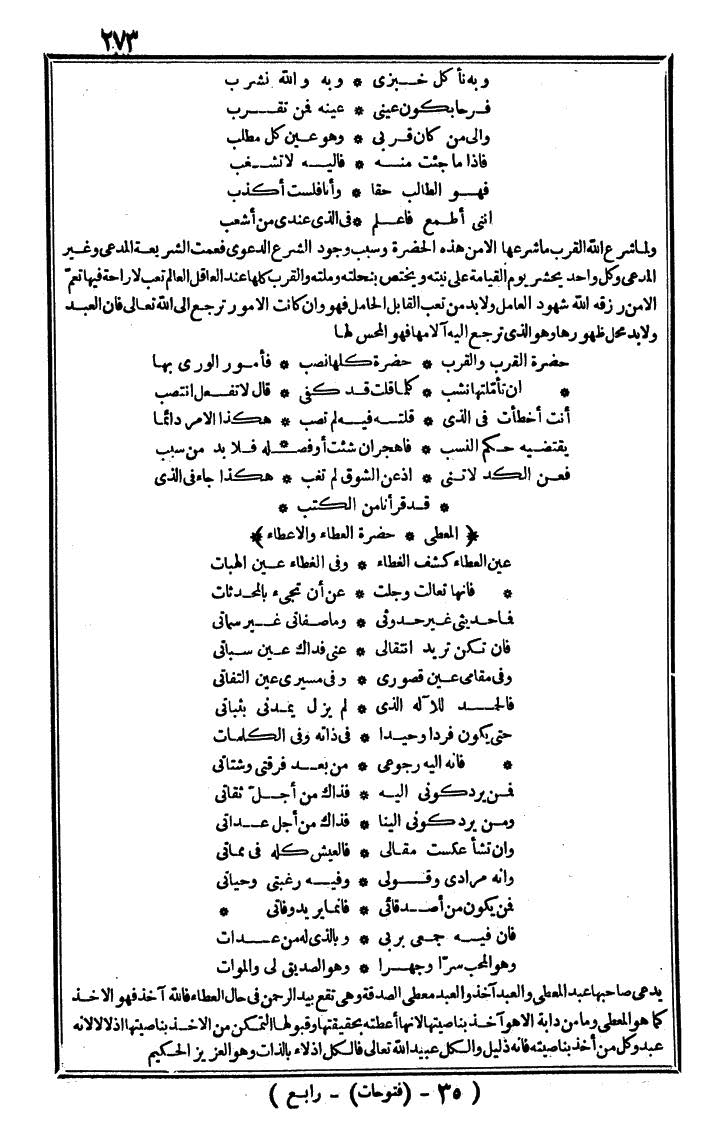 ٢٧٣
وبه نأكل خبزى * وبه والله نشرب
فرحا بكون عينى * عينه فمن تقرب
والى من كان قربى * وهو عين كل مطلب
فاذا ما جئت منه * فاليه لا تشغب
فهو الطالب حقا * وأنا فلست أكذب
اننى أطمع فاعلم * فى الذى عندى من أشعب
ولما شرع الله القرب ما شرعها الا من هذه الحضرة وسبب وجود الشرع الدعوى فعمت الشريعة المدعى وغير
المدعى وكل واحد يحشر يوم القيامة على نيته ويختص بنحلته وملته والقرب كلها عند العاقل العالم تعب لا راحة فيها تعمّ
الا من رزقه الله شهود العامل ولا بد من تعب القابل الحامل فهو وان كانت الامور ترجع الى الله تعالى فان العبد
ولا بد محل ظهورها وهو الذى ترجع اليه آلامها فهو المحس لها
حضرة القرب والقرب * حضرة كلها نصب * فأمور الورى بها
* ان تأمّلتها نشب * كلما قلت قد كفى * قال لا تفعل انتصب
أنت أخطأت فى الذى * قلته فيه لم تصب * هكذا الامر دائما
يقتضيه حكم النسب * فاهجران شئت أو فصله * فلا بد من سبب
فعن الكد لا تنى * اذعن الشوق لم تغب * هكذا جاء فى الذى
* قد قرأنا من الكتب *
﴿ المعطى * حضرة العطاء والاعطاء ﴾
عين العطاء كشف الغطاء * وفى الغطاء عين الهبات
* فانها تعالت وجلت * عن أن تجىء بالمحدثات
فما حديثى غير حدوثى * وما صفاتى غير سماتى
فان تكن تريد انتقالى * عنى فذاك عين سباتى
وفى مقامى عين قصورى * وفى مسيرى عين التفاتى
فالحمد للاله الذى * لم يزل يمدنى بثباتى
حتى يكون فردا وحيدا * فى ذاته وفى الكلمات
* فانه اليه رجوعى * من بعد فرقتى وشتاتى
فمن يرد كونى اليه * فذاك من أجلّ ثقاتى
ومن يرد كونى الينا * فذاك من أجل عداتى
وان تشأ عكست مقالى * فالعيش كله فى مماتى
وانه مرادى وقولى * وفيه رغبتى وحياتى
فمن يكون من أصدقائى * فانما يريد وفاتى *
فان فيه جمعى بربى * وبالذى له من عدات
وهو المحب سرّا وجهرا * وهو الصديق لى والموات
يدعى صاحبها عبد المعطى والعبد آخذ والعبد معطى الصدقة وهى تقع بيد الرحمن فى حال العطاء فالله آخذ فهو الاخذ
كما هو المعطى وما من دابة الا هو آخذ بناصيتها لانها أعطته بحقيقتها وقبولها التمكن من الاخذ بناصيتها اذلالا لانه
عبد وكل من أخذ بناصيته فانه ذليل والكل عبيد الله تعالى فالكل اذلاء بالذات وهو العزيز الحكيم
( ٣٥ - (فتوحات) - رابع )